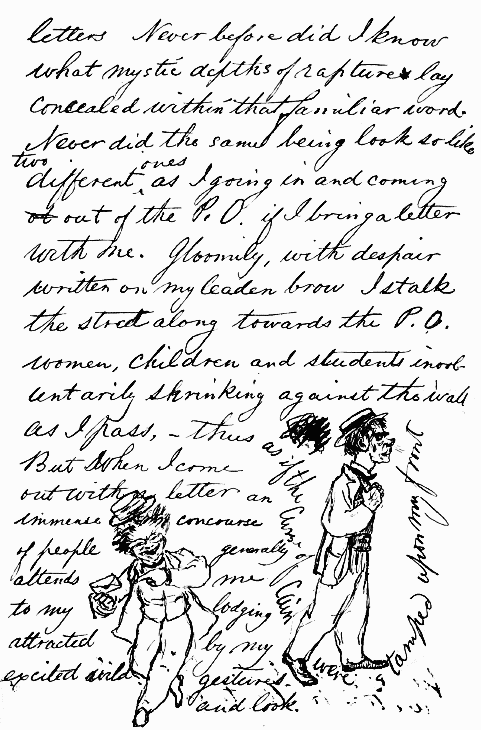 letters Never before did I know
what mystic depths of rapture lay
concealed within that familiar word.
Never did the same being look so like
two ones
different as I going in and coming
out of the P. O. if I bring a letter
with me. Gloomily, with despair
written on my leaden brow I stalk
the street along towards the P. O.
women, children and students invol-
untarily shrinking against the wall
as I pass, – thus
as if the Curse of Cain were stamped upon my front
But when I come
out with a letter an
immense concourse
of people generally
attends me
to my lodging
attracted by my
excited wild gestures.
and look.